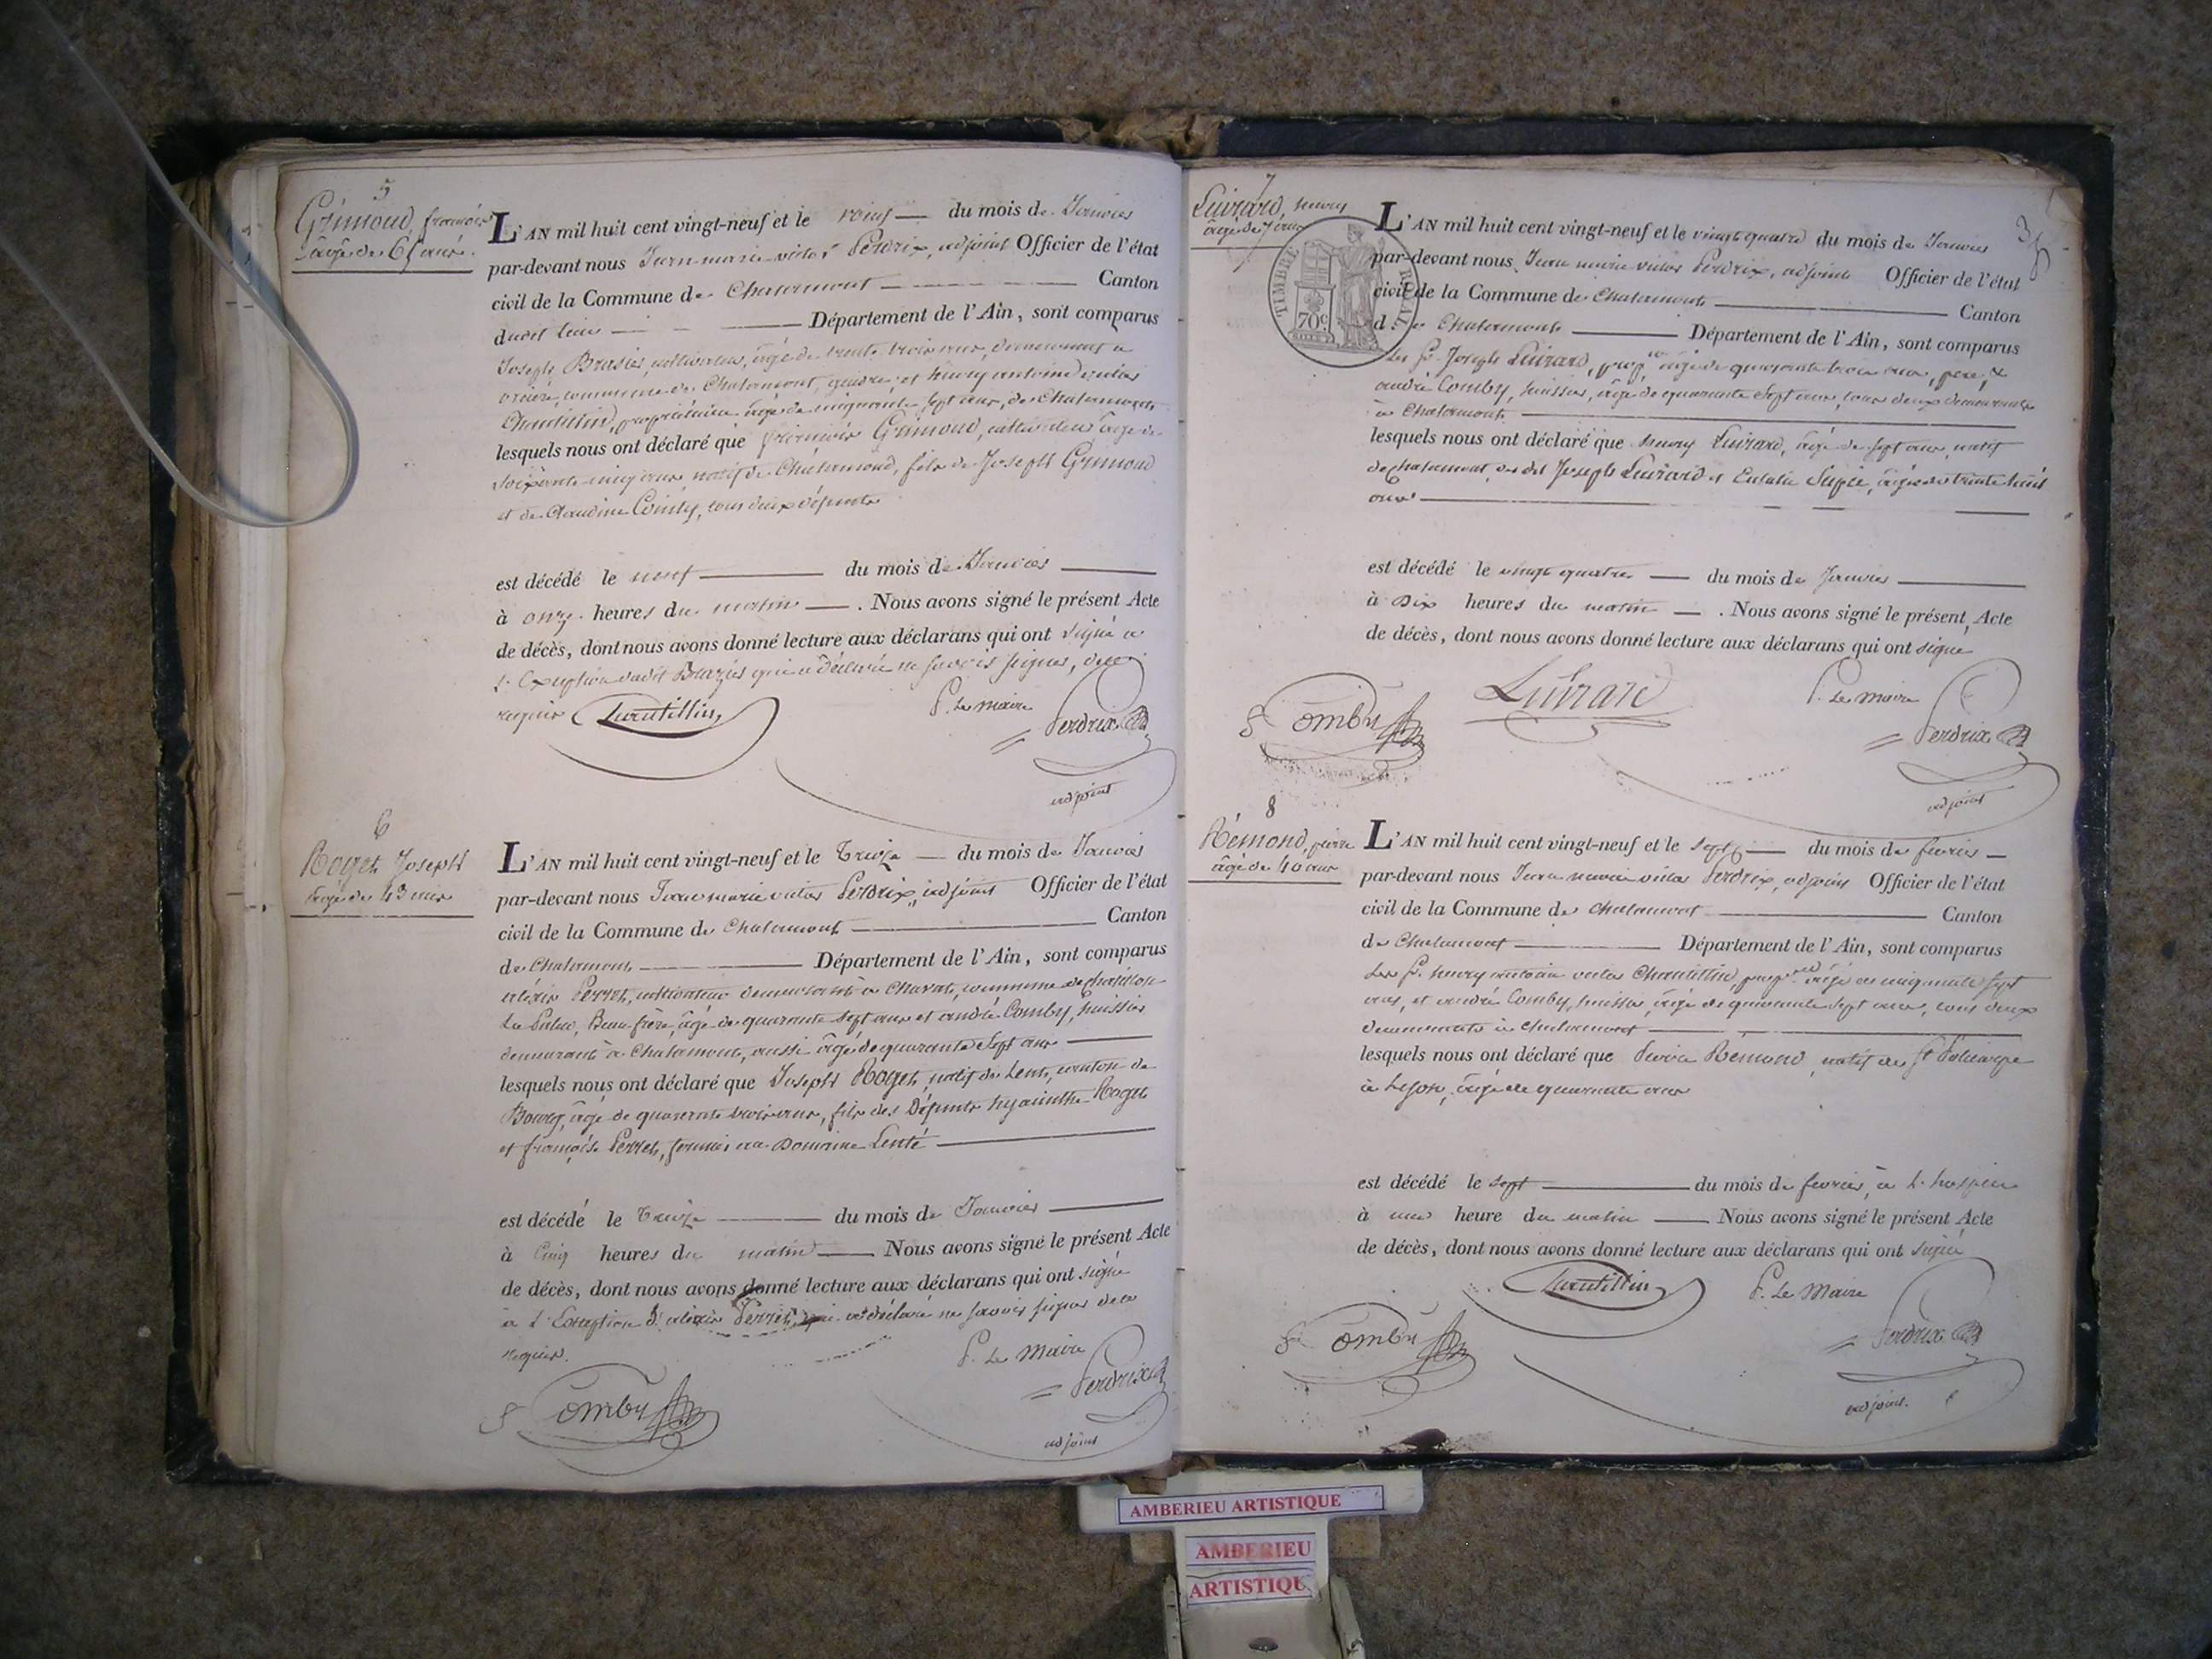 5
Grimoud, françois
âgé de 65 ans.
L'AN mil huit cent vingt-neuf et le neuf du mois de Janvier
par-devant nous Jean marie victor Perdrix, adjoint Officier de l'état
civil de la Commune de Chalamont Canton
dudit lieu Département de l'Ain, sont comparus
Joseph Brasier, cultivateur, âgé de trente trois ans, demeurant a
commune de Chalamont, gendre, et henry antoine victor
Chantillin, propriétaire âgé de cinquante sept ans, de Chalamont
lesquels nous ont déclaré que françois Grimoud, cultivateur âgé de
soixante cinq ans, natif de Chalamond, fils de Joseph Grimoud
et de Claudine Comby, tous deux défunts
est décédé le neuf du mois de Janvier
à onze heures du matin . Nous avons signé le présent Acte
de décès, dont nous avons donné lecture aux déclarans qui ont signé a
l'Exception dudit qui a déclaré ne savoir signer, de ce
requis Chantillin
P. Le maire
Perdrix
adjoint
6
Roget Joseph
âgé de 43 ans
L'AN mil huit cent vingt-neuf et le treize du mois de Janvier
par-devant nous Jean marie victor Perdrix, adjoint Officier de l'état
civil de la Commune de Chalamont Canton
de Chalamont Département de l'Ain, sont comparus
alexis Perret, cultivateur demeurant a commune de Chatillon
la Palud, Beau frère, âgé de quarante sept ans et andré Comby, huissier
demeurant à Chalamont, aussi âgé de quarante sept ans
lesquels nous ont déclaré que Joseph Roget, natif de Lent, canton de
Bourg, âgé de quarante trois ans, fils des Défunts hyacinthe Roget
et françoise Perret, fermier au Domaine Lenté
est décédé le treize du mois de Janvier
à Cinq heures du matin Nous avons signé le présent Acte
de décès, dont nous avons donné lecture aux déclarans qui ont signé
a l'Exception d'alexis Perret, qui a déclaré ne savoir signer de ce
requis.
Comby
P. Le Maire
Perdrix
adjoint
7
Luirard, henry
âgé de 7 ans
TIMBRE ROYAL
70 c.
L'AN mil huit cent vingt-neuf et le vingt quatre du mois de Janvier
par-devant nous Jean marie victor Perdrix, adjoint Officier de l'état
civil de la Commune de Chalamont Canton
de Chalamont Département de l'Ain, sont comparus
Les Srs Joseph Luirard, propre âgé de quarante trois ans, pere, &
andré Comby, huissier, âgé de quarante sept ans, tous deux demeurants
à Chalamont
lesquels nous ont déclaré que henry Luirard, âgé de sept ans, natif
de chalamont, de Joseph Luirard et Eulalie âgée de trente huit
ans
est décédé le vingt quatre du mois de Janvier
à Dix heures du matin . Nous avons signé le présent Acte
de décès, dont nous avons donné lecture aux déclarans qui ont signé
Comby
Luirard
P. Le maire
Perdrix
adjoint
8
Rémond, pierre
âgé de 40 ans
L'AN mil huit cent vingt-neuf et le sept du mois de fevrier
par-devant nous Jean marie victor Perdrix, adjoint Officier de l'état
civil de la Commune de Chalamont Canton
de Chalamont Département de l'Ain, sont comparus
Les Srs henry antoine victor Chantillin, propre âgé de cinquante sept
ans, et andré Comby, huissier, âgé de quarante sept ans, tous deux
demeurants à Chalamont
lesquels nous ont déclaré que Pierre Rémond, natif de St Policarpe
à Lyon, âgé de quarante ans
est décédé le sept du mois de fevrier, a l'hospice
à une heure du matin Nous avons signé le présent Acte
de décès, dont nous avons donné lecture aux déclarans qui ont signé
Comby
Chantillin
P. Le Maire
Perdrix
adjoint.
AMBERIEU ARTISTIQUE
AMBERIEU
ARTISTIQU